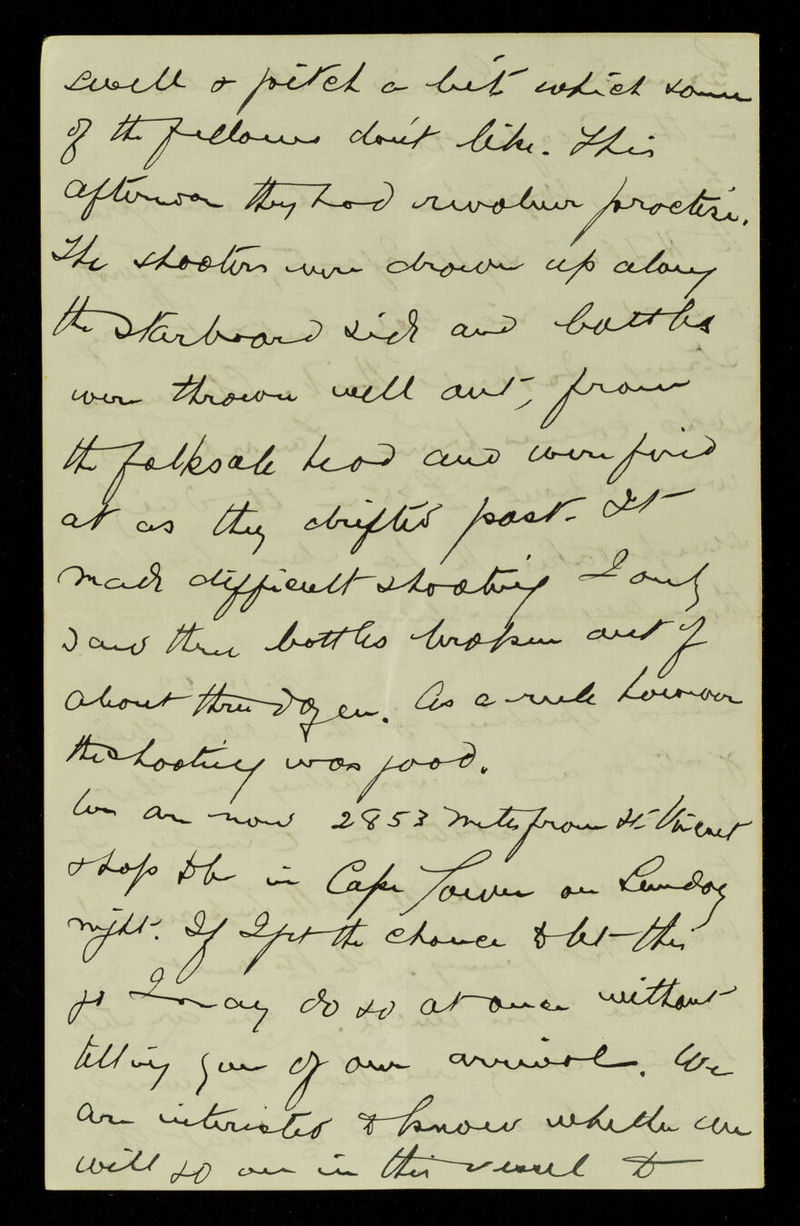 swell & pitch a bit which some
of the fellows don't like. This
afternoon they had revolver practise.
The shooters were drawn up along
the starboard side and bottles
were thrown well out, from
the folksale head and were fired
at as they drifted past. It
made difficult shooting I only
saw three bottles broken out of
about three dozen. As a rule however
the shooting was good.
We are now 2853 miles from St. Vincent
& hope to be in Cape Town on Sunday
night. If I get the chance to let this
go I may do so at once without
telling you of our arrival. We
are interested to know whether we
will go on in this vessel to